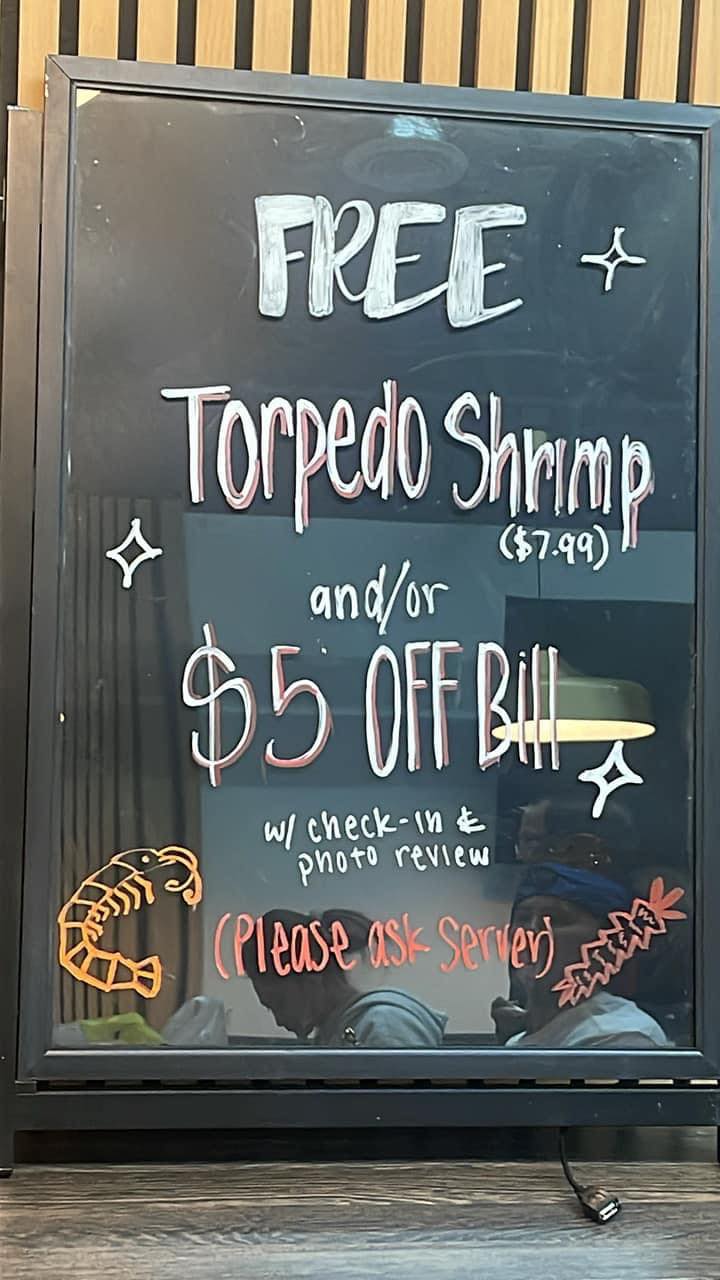 FREE
Torpedo Shrimp
($7.99)
and/or
$5 OFF Bill
w/ check-in &
photo review
(Please ask Server)